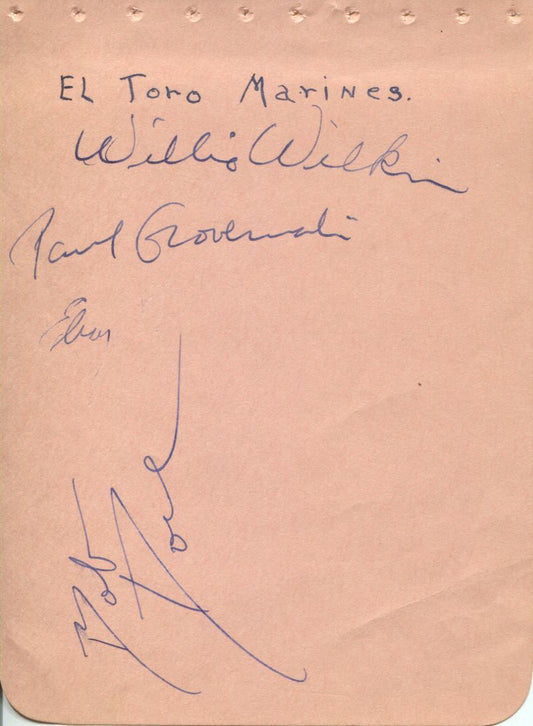 EL Toro Marines.
Willis Wilkin
Paul Governali
Bob